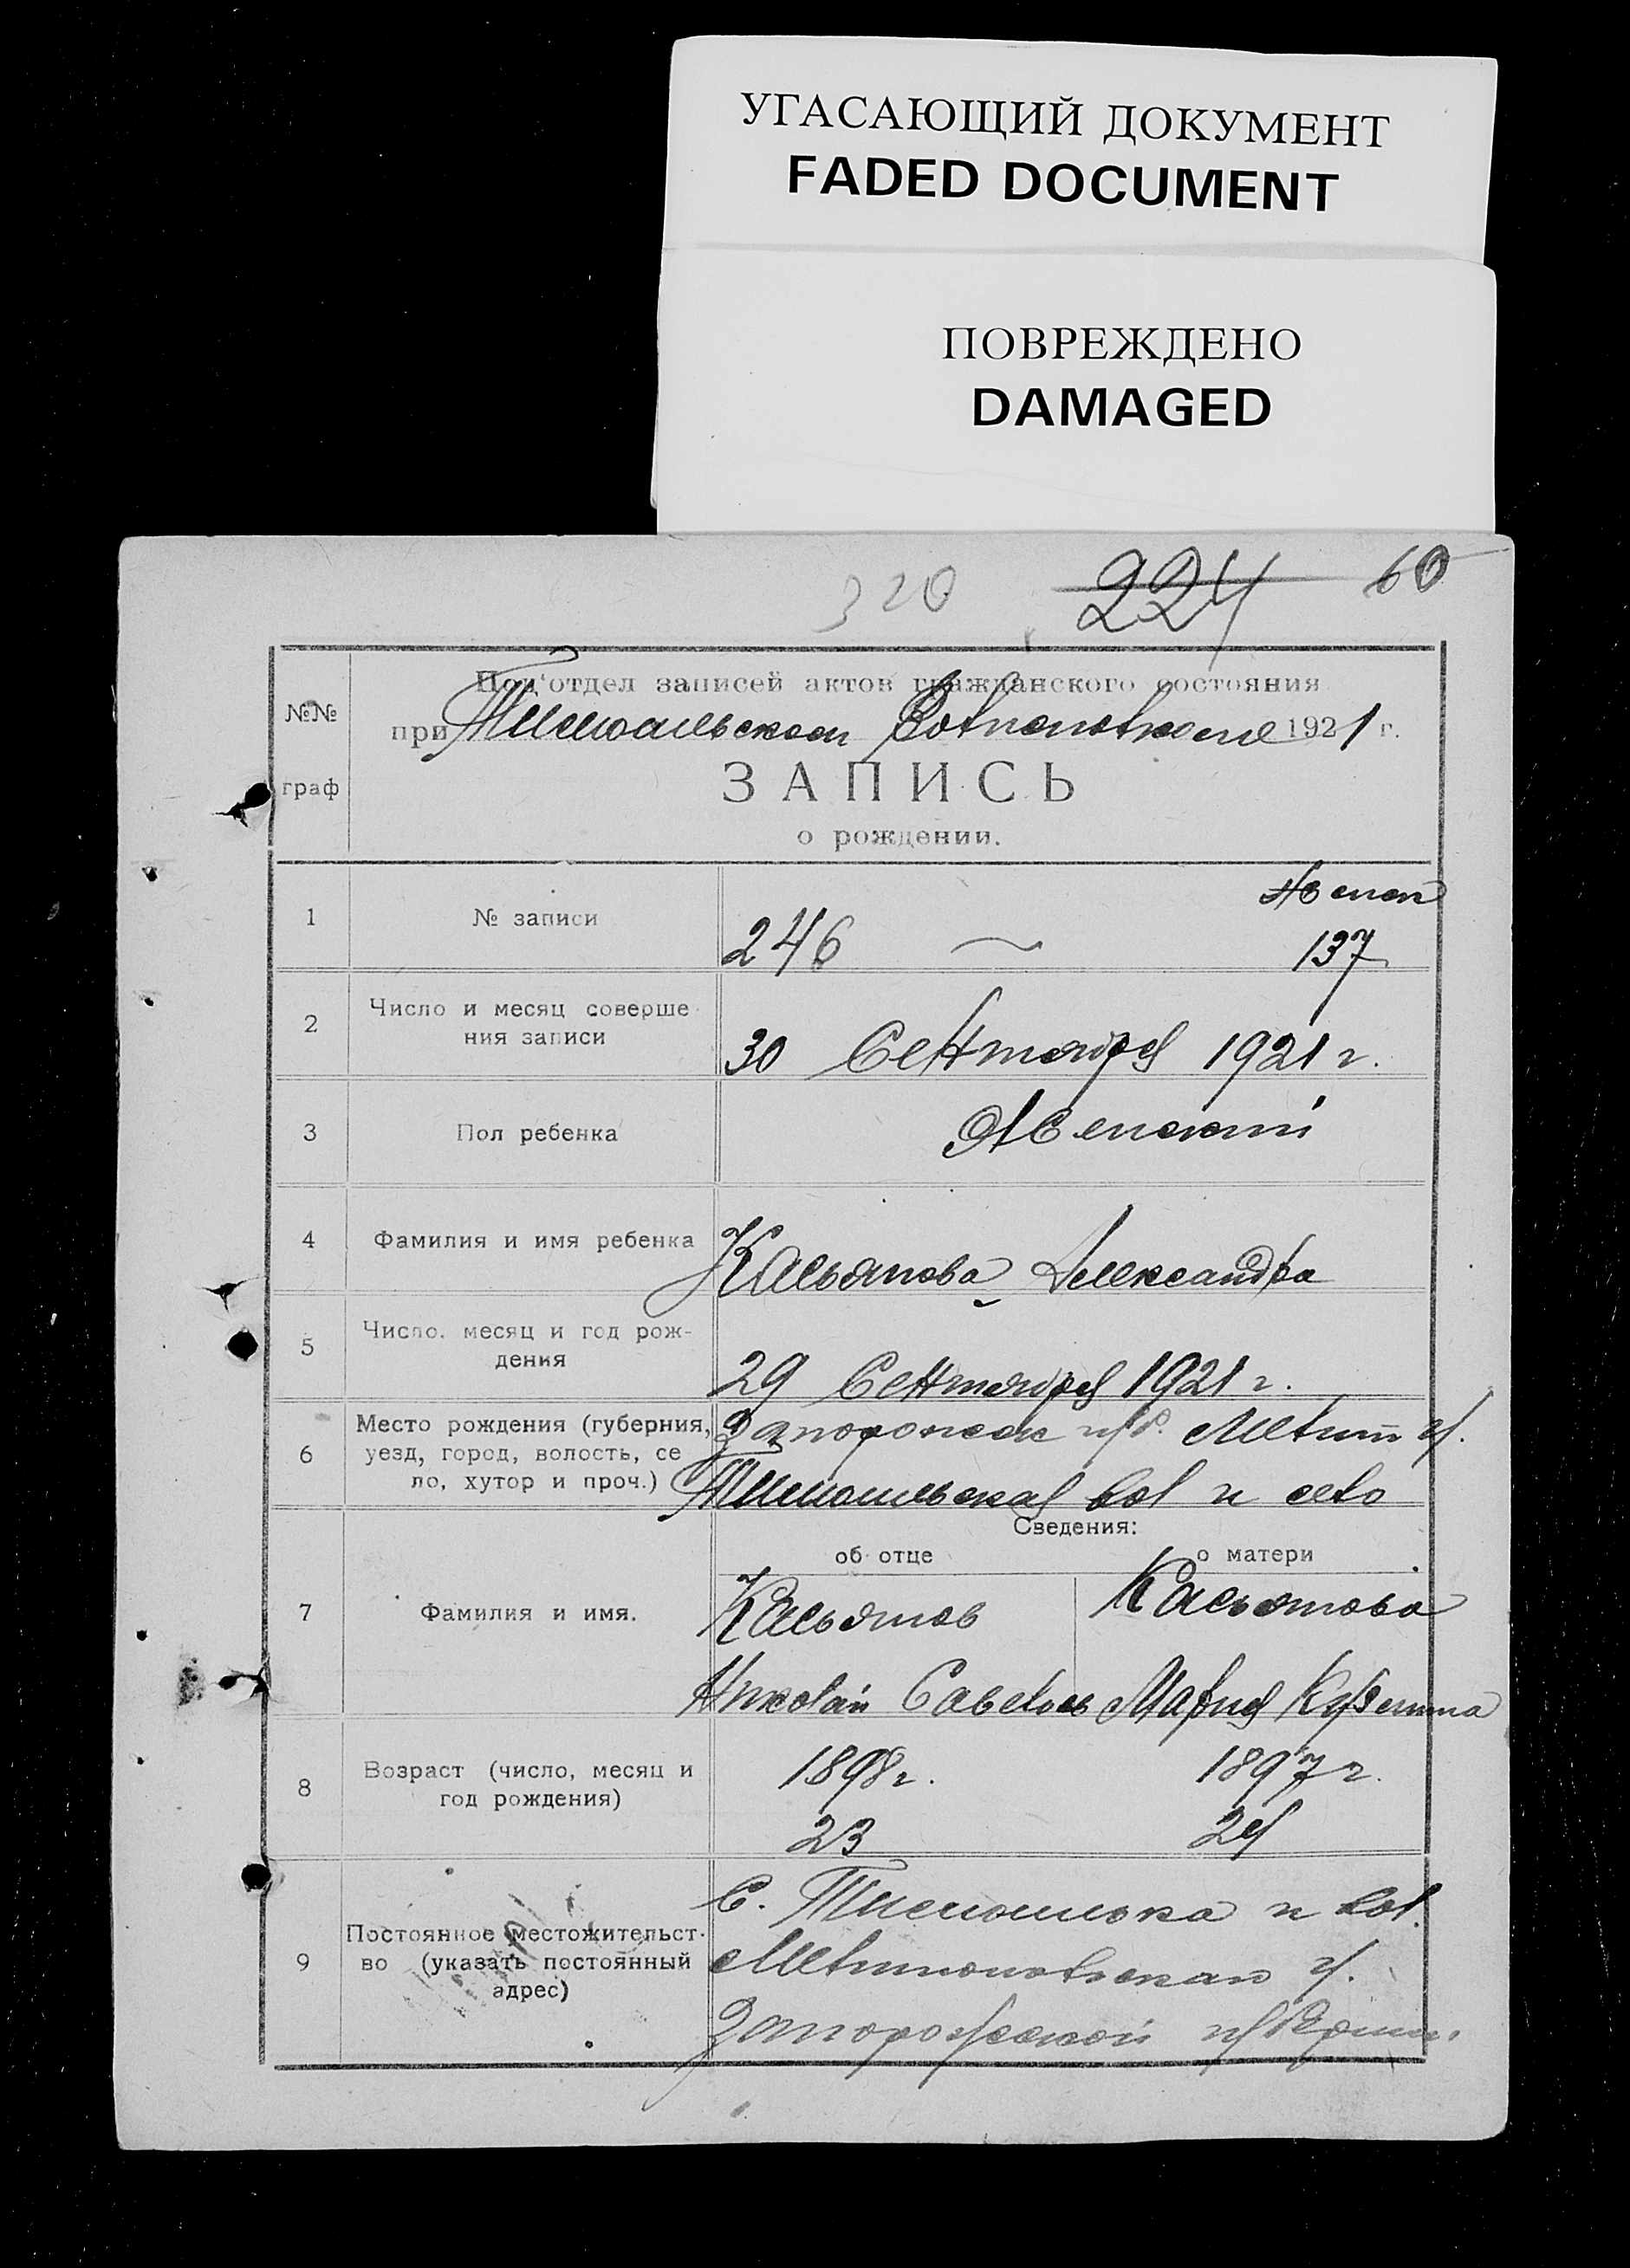 УГАСАЮЩИЙ ДОКУМЕНТ
FADED DOCUMENT
ПОВРЕЖДЕНО
DAMAGED
320 224 60
Под'отдел записей актов гражданского состояния
№№
при Тимошовском Волисполкоме 1921 г.
граф
ЗАПИСЬ
о рождении.
Женск
1 № записи 246 137
2 Число и месяц соверше
ния записи 30 Сентября 1921 г.
3 Пол ребенка Женский
4 Фамилия и имя ребенка Касьянова Александра
5 Число, месяц и год рож-
дения 29 Сентября 1921 г.
Место рождения (губерния, Запорожск губ. Мелит у.
6 уезд, город, волость, се
ло, хутор и проч.) вол и село
Сведения:
об отце о матери
7 Фамилия и имя. Касьянов Касьянова
Николай Савельев Мария Кузьмина
8 Возраст (число, месяц и 1898 г. 1897 г.
год рождения)
23 24
С. и вол.
Постоянное местожительст-
9 во (указать постоянный у.
адрес)
Запорожской губернии